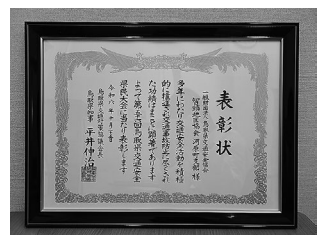 表彰状
一般財団法人鳥取県交通安全協会
智頭地区協会 河原町支部 様
多年にわたり交通安全活動を積極
的に推進し交通事故防止に尽くされ
た功績はまことに顕著であります
よって第五十一回鳥取県交通安全
県民大会に当たり表彰します
令和
鳥取県交通対策協議会会長
鳥取県知事 平井伸治